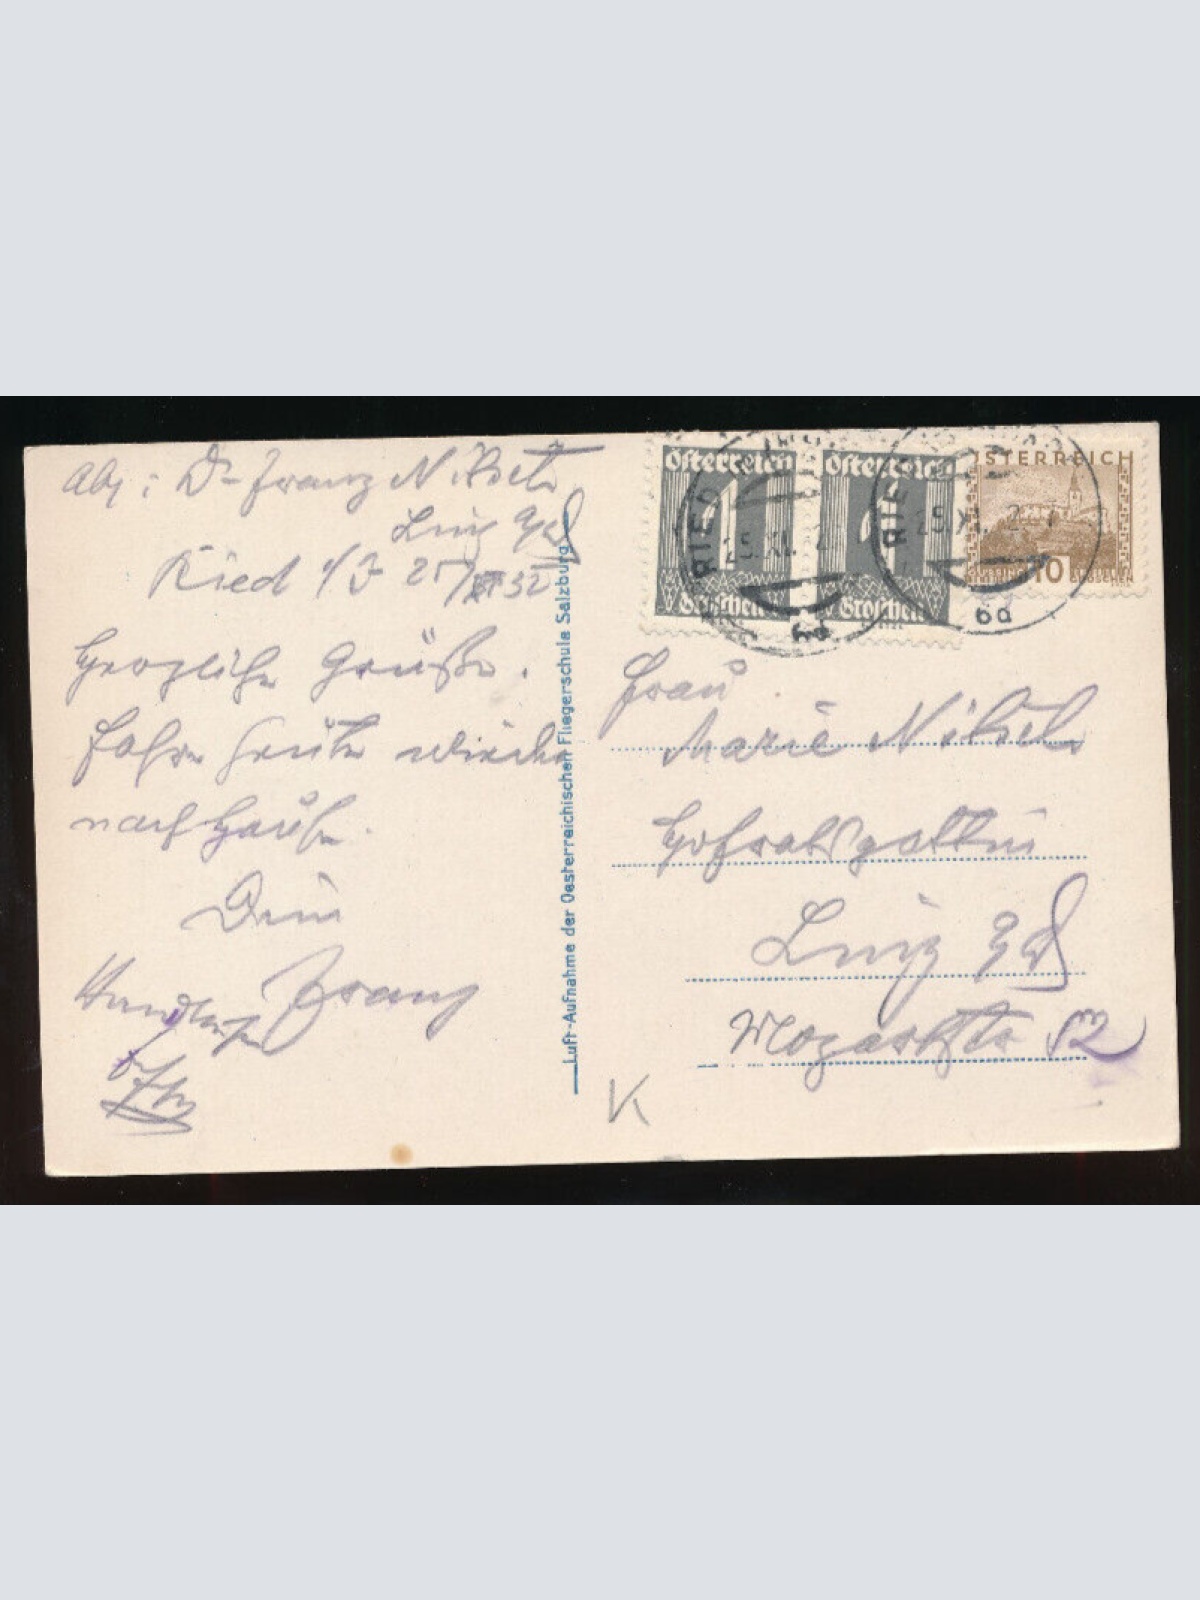 Abs: Dr Franz
Linz
Ried i/I 25/ 32
Herzliche Grüße.
Fahre heute wieder
nach Hause.
Dein
Franz
Luft-Aufnahme der Oesterreichischen Fliegerschule Salzburg
Österreich
1
Groschen
Österreich
1
Groschen
ÖSTERREICH
10
GROSCHEN
RIED
25.XI.
6a
RIED
25.XI.
6a
Frau
Marie
Hofratsgattin
Linz
Mozartstr
K